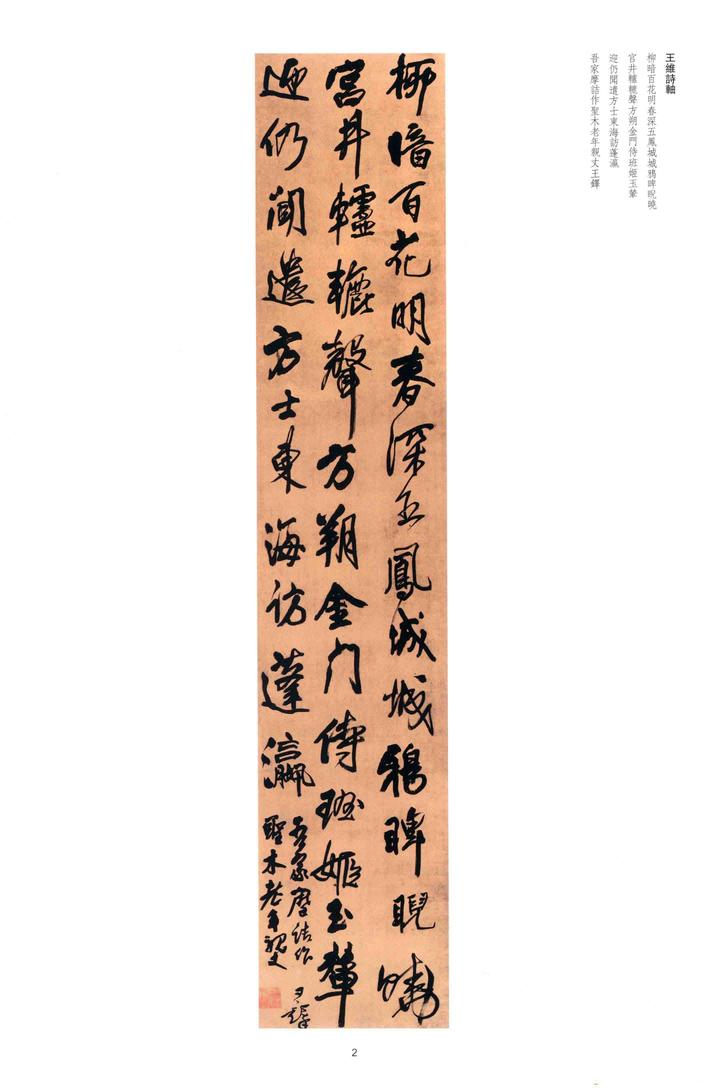 王維詩軸
柳暗百花明春深五鳳城城鴉睥睨曉
宮井轤轆聲方朔金門侍班姬玉輦
迎仍聞遣方士東海訪蓬瀛
吾家摩詰作聖木老年親丈王鐸
柳暗百花明春深五鳳城城鴉睥睨曉
宮井轤轆聲方朔金門侍班姬玉輦
迎仍聞遣方士東海訪蓬瀛
吾家摩詰作
聖木老年親丈
王鐸
2